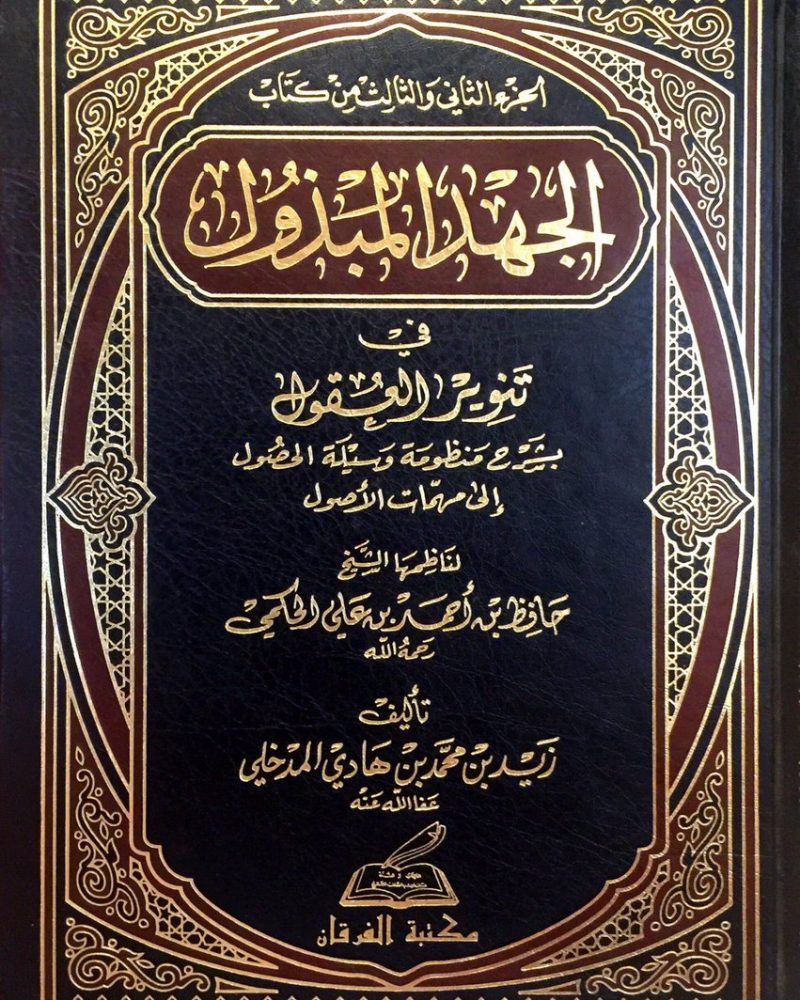 الجزء الثاني والثالث من كتاب
الجهد المبذول
في
تنوير العقول
بشرح منظومة وسيلة الحصول
إلى مهمات الأصول
لناظمها الشيخ
حافظ بن أحمد بن علي الحكمي
رحمه الله
تأليف
زيد بن محمد بن هادي المدخلي
عفا الله عنه
مكتبة الفرقان